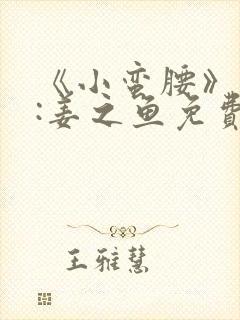 《小蛮腰》
:姜之鱼免費
王雅慧